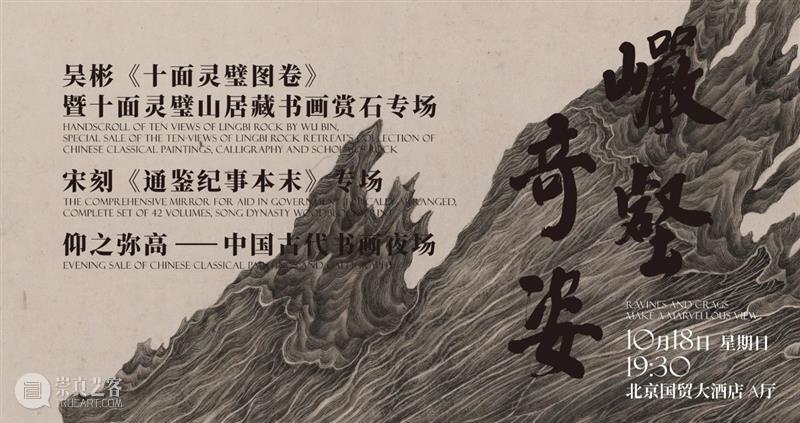 吴彬《十面灵璧图卷》
暨十面灵璧山居藏书画赏石专场
HANDSCROLL OF TEN VIEWS OF LINGBI ROCK BY WU BIN,
SPECIAL SALE OF THE TEN-VIEWS OF LINGBI ROCK RETREAT'S COLLECTION OF
CHINESE CLASSICAL PAINTINGS, CALLIGRAPHY AND SCHOLAR'S ROCK
宋刻《通鉴纪事本末》专场
THE COMPREHENSIVE MIRROR FOR AID IN GOVERNMENT TOPICALLY ARRANGED,
COMPLETE SET OF 42 VOLUMES, SONG DYNASTY WOODBLOCK PRINT
仰之弥高——中国古代书画夜场
EVENING SALE OF CHINESE CLASSICAL PAINTINGS AND CALLIGRAPHY
巖壑
奇姿
RAVINES AND CRAGS
MAKE A MARVELLOUS VIEW
10月18日 星期日
19:30
北京国贸大酒店 A厅
崇真艺客
TRUEART.COM